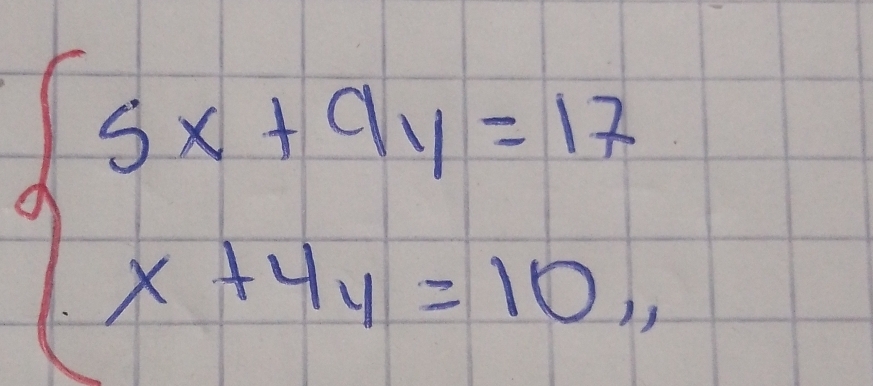 5x + 9y = 17
x + 4y = 10,,